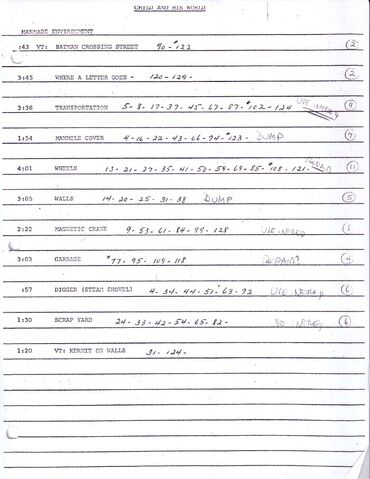 CHILD AND HIS WORLD
MANMADE ENVIRONMENT
:43 VT: BATMAN CROSSING STREET 90-*122 (2)
3:45 WHERE A LETTER GOES - 120-129- (2)
3:38 TRANSPORTATION 5-8-17-37-45-67-87-*102-124 USE (9)
1:54 MANHOLE COVER 4-16-22-43-66-74-*123- DUMP (7)
4:01 WHEELS 13-21-27-35-41-50-59-69-85-*108-121- (11)
3:05 WALLS 14-20-25-31-38 DUMP (5)
2:22 MAGNETIC CRANE 9-53-61-84-99-128 USE (6)
3:03 GARBAGE *77-95-109-118 REPAIR? (4)
:57 DIGGER (STEAM SHOVEL) 4-34-44-51-*63-72 USE (6)
1:30 SCRAP YARD 24-33-42-54-65-82- (6)
1:20 VT: KERMIT ON WALLS 31-124-